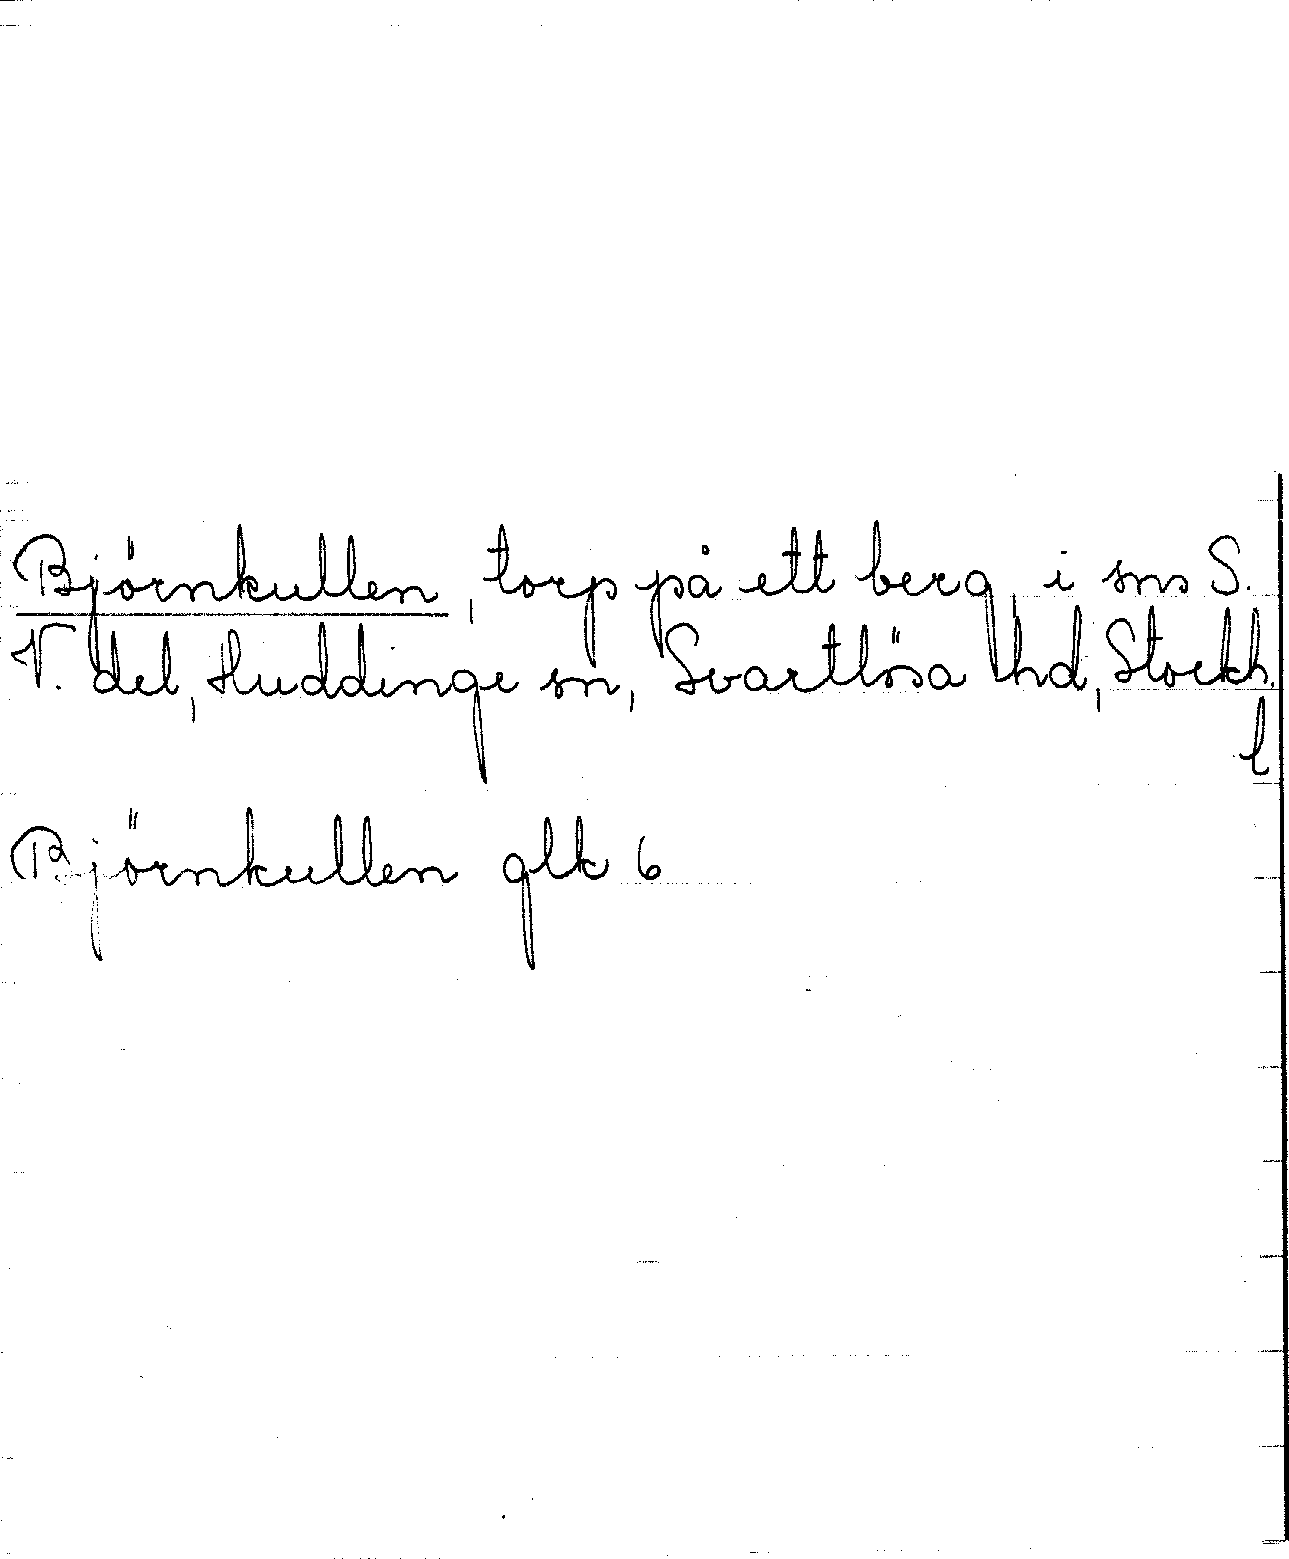 Björnkullen, torp på ett berg, i sns S.
V. del, Huddinge sn, Svartlösa hd, Stockh.
l
Björnkullen glk 6